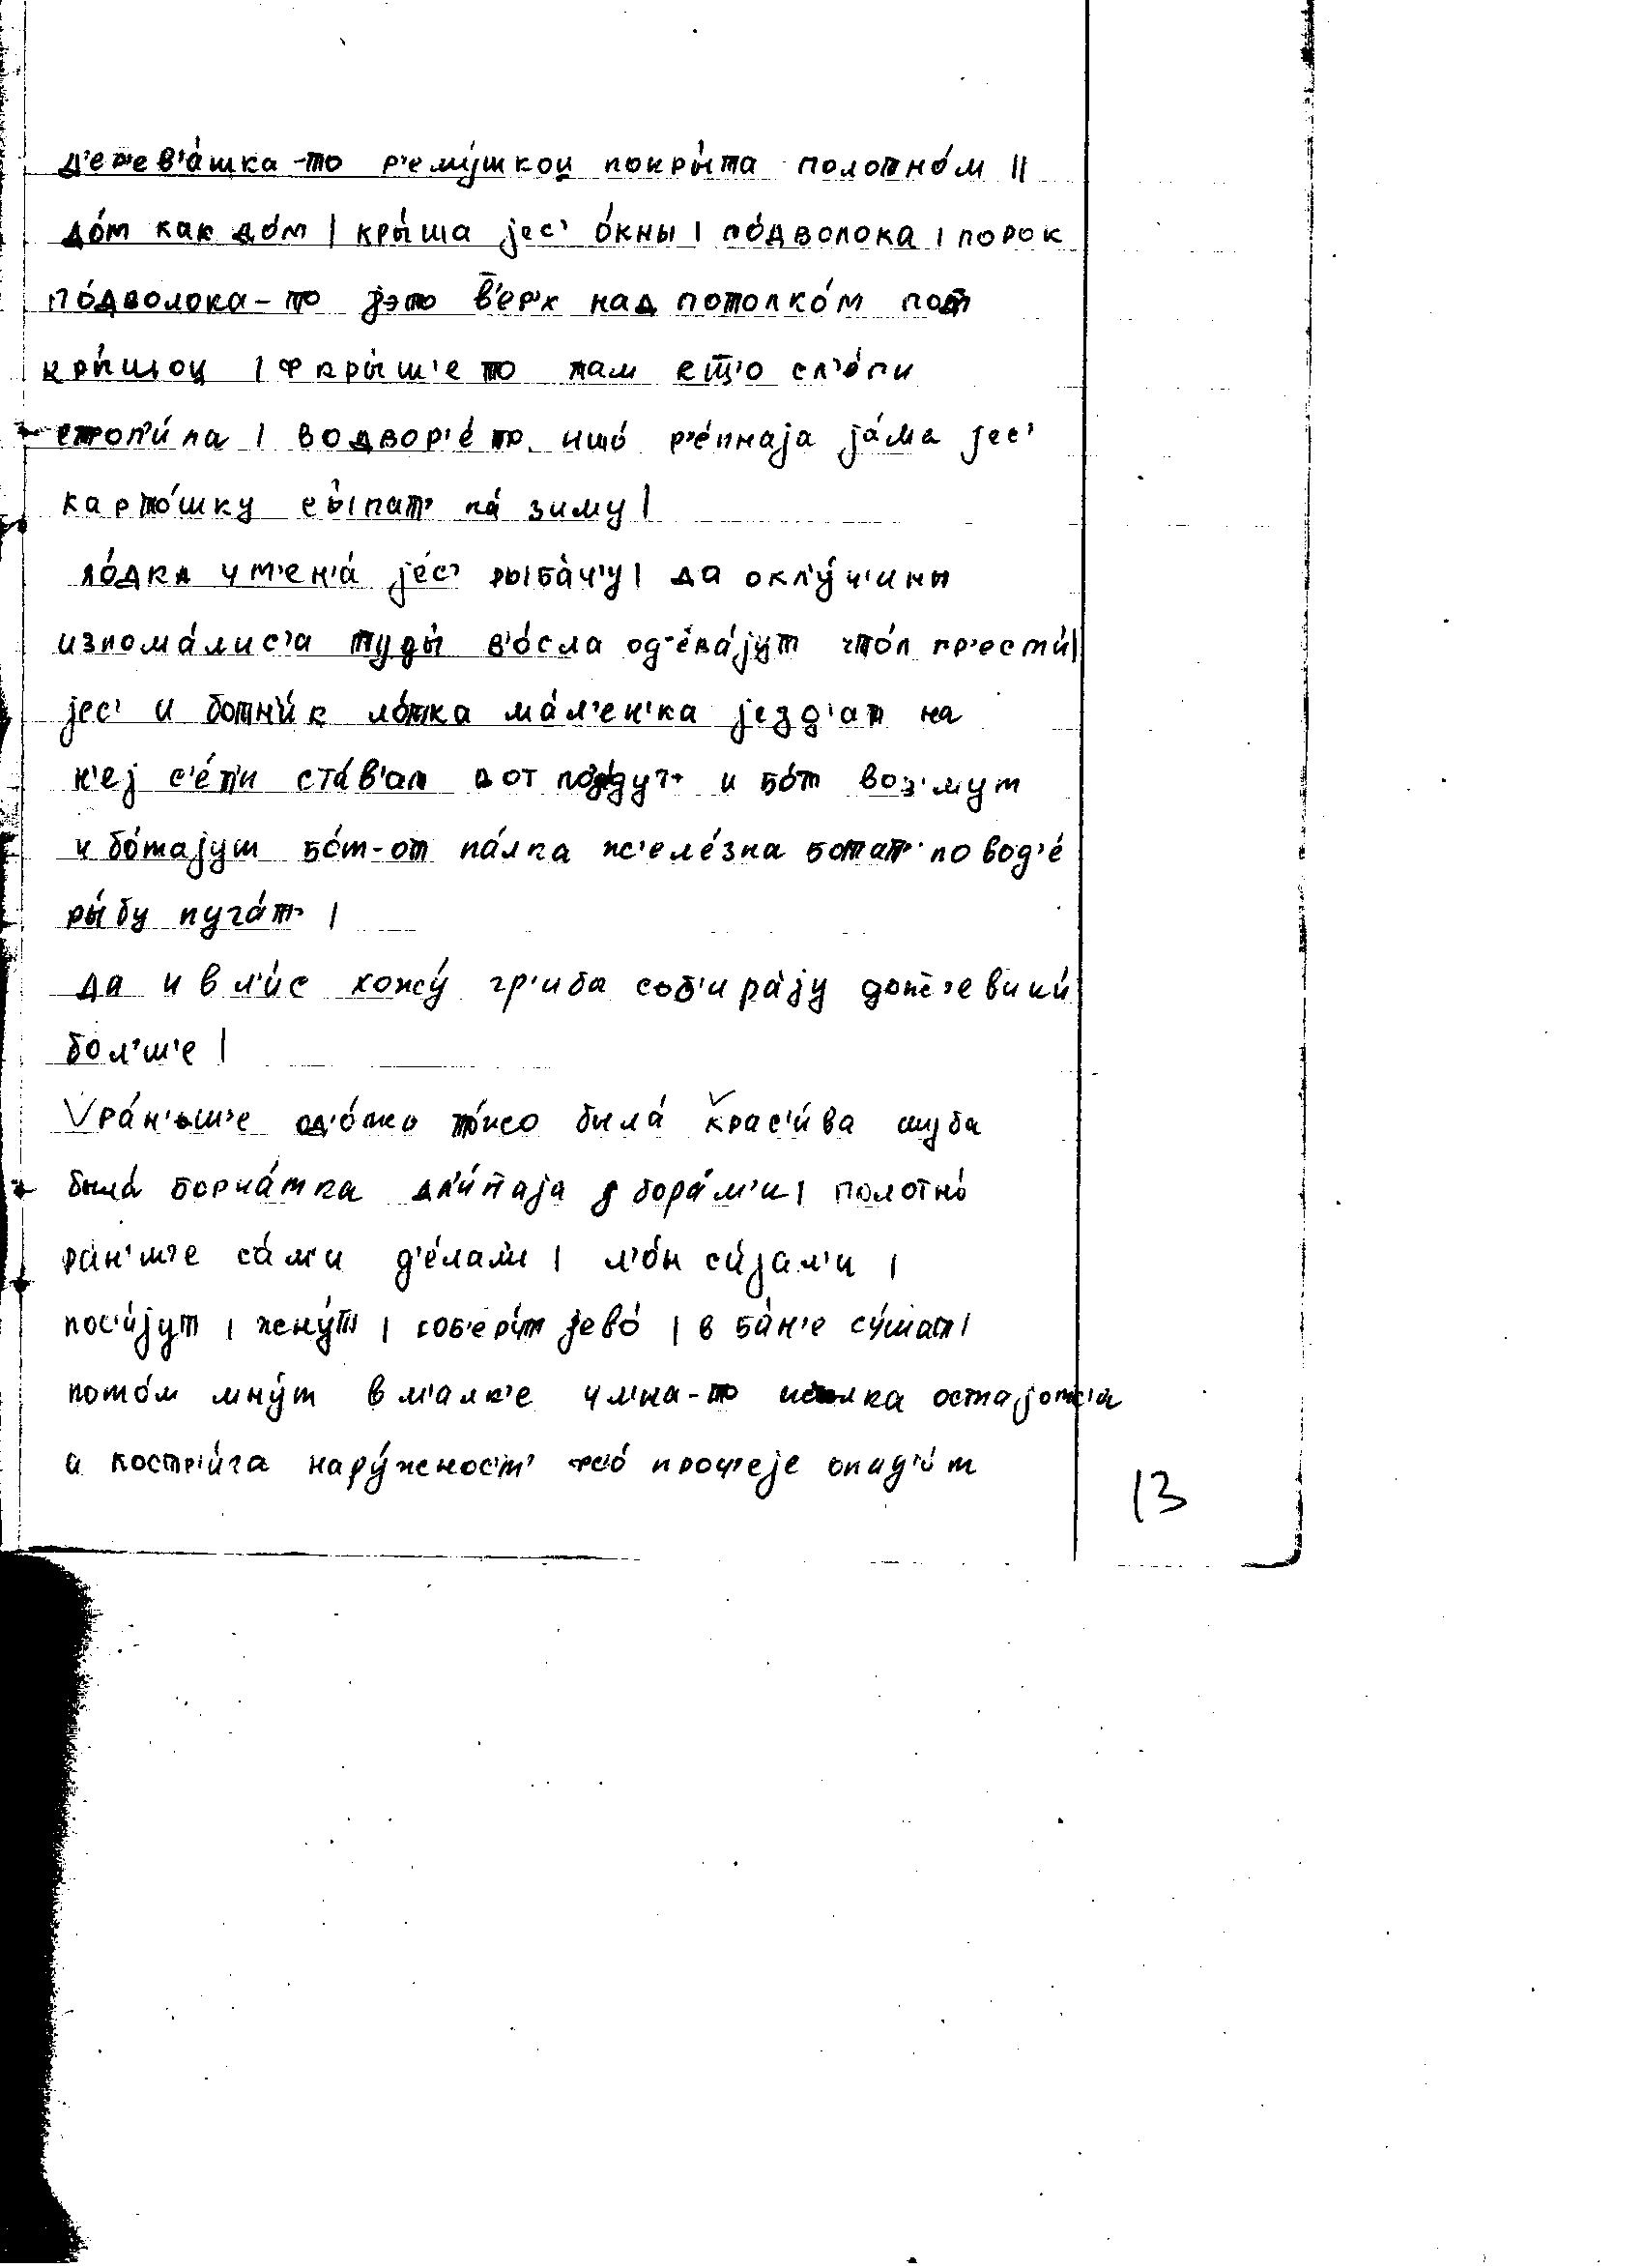 д'ер'ев'а́шка-то р'ему́шкоц покры́та полотно́м ||
до́м как до́м | кры́ша јес' о́кны | по́дволока | порок
по́дволока-то јэто в'е́р'х над потолко́м пот
кры́шоц | фкры́ш'е то там ещ'о сл'о́ги
строп'и́ла | водвор'е́ то ишо́ р'е́пнаја ја́ма јес'
карто́шку сы́пат' на́ зиму |
ло́дка у м'ен'а́ јес' рыба́ч'у | да окл'у́ч'ины
изломáлис'а туды́ в'о́сла од'ева́јут што́п гр'ести́ |
јес' и ботн'и́к ло́тка ма́л'ен'ка језд'ат на
н'еј с'е́т'и ста́в'ат вот по́јдут и бо́т воз'мут
и бо́тајут бо́т-от па́лка ж'еле́зна ботат' по вод'е́
ры́бу пуга́т' |
да и в л'и́с хожу́ гр'иба соб'ира́ју дожж'евики́
бо́л'ш'е |
ра́н'ьш'е од'о́жа то́жо была́ крас'и́ва шуба
была́ борча́тка дл'и́наја з бора́м'и | полотно́
ра́н'ш'е са́м'и д'е́лал'и | л'о́н си́јал'и |
пос'и́јут | жну́т | соб'еру́т јево́ | в ба́н'е су́шат |
пото́м мну́т в м'алк'е остајотс'а
а костр'и́га нару́жност' фс'о́ проч'еје опад'о́т
13